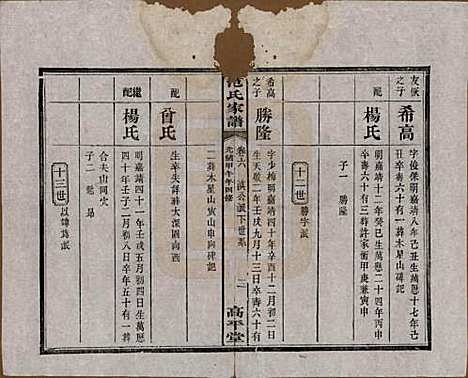 友恢
之子
希高
字俊保明嘉靖八年己丑生萬厯十七年己
丑卒壽六十有一葬木星山碑記
配
楊氏
明嘉靖十二年癸巳生萬厯二十四年丙申
卒壽六十有三葬許家衝甲庚兼寅申
子一 勝隆
十二世
勝字派
希高
之子
勝隆
字少梅明嘉靖四十年辛酉十二月初二日
生天啟二年壬戌九月十三日卒壽六十有
范氏家譜
卷之六
洪公派下世系
光緒甲午年四修
高平堂
二葬木星山寅山申向碑記
配
曾氏
生卒失詳葬大深園南西
繼配
楊氏
明嘉靖四十一年壬戌五月初四日生萬厯
四十年壬子二月初八日卒年五十有一葬
合夫山同穴
子二
十三世
以
為派